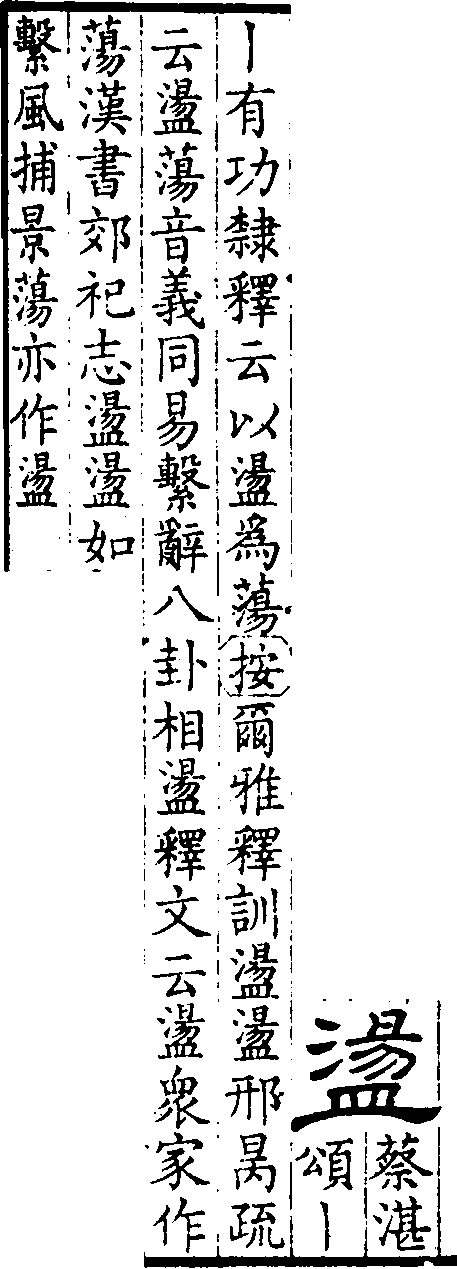 盪
蔡湛
頌丨
丨有功隸釋云以盪爲蕩按爾雅釋訓盪盪邢昺疏
云盪蕩音義同易繫辭八卦相盪釋文云盪衆家作
蕩漢書郊祀志盪盪如
繫風捕景蕩亦作盪